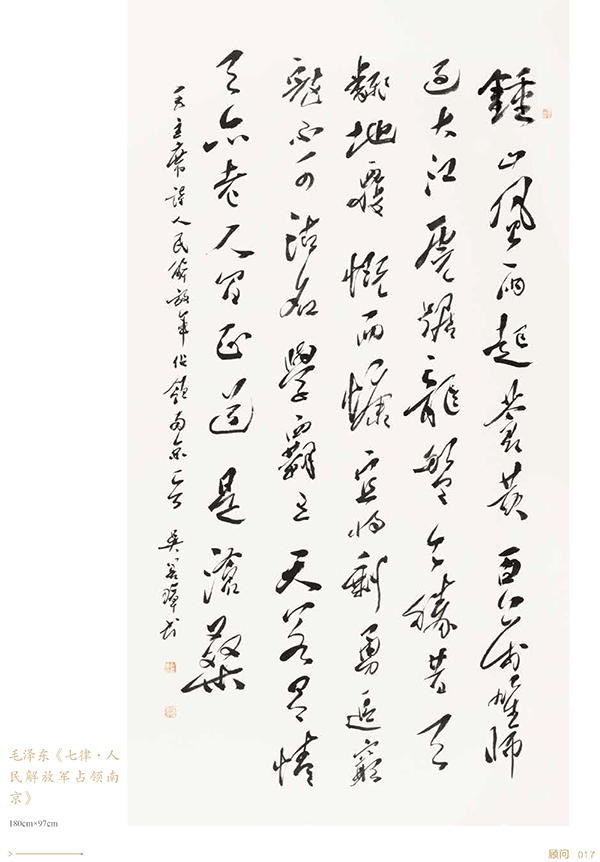 鍾山風雨起蒼黃百萬雄師
過大江虎踞龍盤今勝昔天
翻地覆慨而慷宜將剩勇追窮
寇不可沽名學霸王天若有情
天亦老人間正道是滄桑
毛主席詩人民解放軍佔領南京一首 吳善璋书
毛泽东《七律·人
民解放军占领南
京》
180cm×97cm
顾问 017